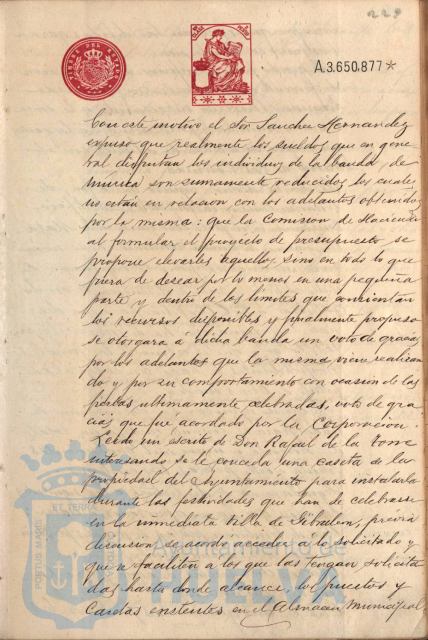 229
TIMBRE DEL ESTADO
A.3.650,877*
Con este motivo el Sor Sanchez Hernandez
expuso que realmente los sueldos que en gene
ral disfrutan los individuos de la banda de
musica son sumamente reducidos los cuales
no estan en relacion con los adelantos obtenidos
por la misma: que la Comision de Hacienda
al formular el proyecto de presupuesto se
propone elevarles aquellos, sino en todo lo que
fuera de desear por lo menos en una pequeña
parte y dentro de los limites que consientan
los recursos disponibles y finalmente propuso
se otorgara á dicha banda un voto de gracias
por los adelantos que la misma viene realizan
do y por su comportamiento con ocasion de las
fiestas ultimamente celebradas, voto de gra
cias que fue acordado por la Corporacion.
Leido un escrito de Don Rafael de la Torre
interesando se le conceda una caseta de la
propiedad del Ayuntamiento para instalarla
durante las festividades que han de celebrarse
en la inmediata villa de Gibraleon, previa
discusion se acordo acceder a lo solicitado y
que se faciliten a los que las tengan solicita
das hasta donde alcance, los puestos y
casetas existentes en el Almacen Municipal,
Ayuntamiento de
HUELVA
PORTUS MARIS ET TERRAE